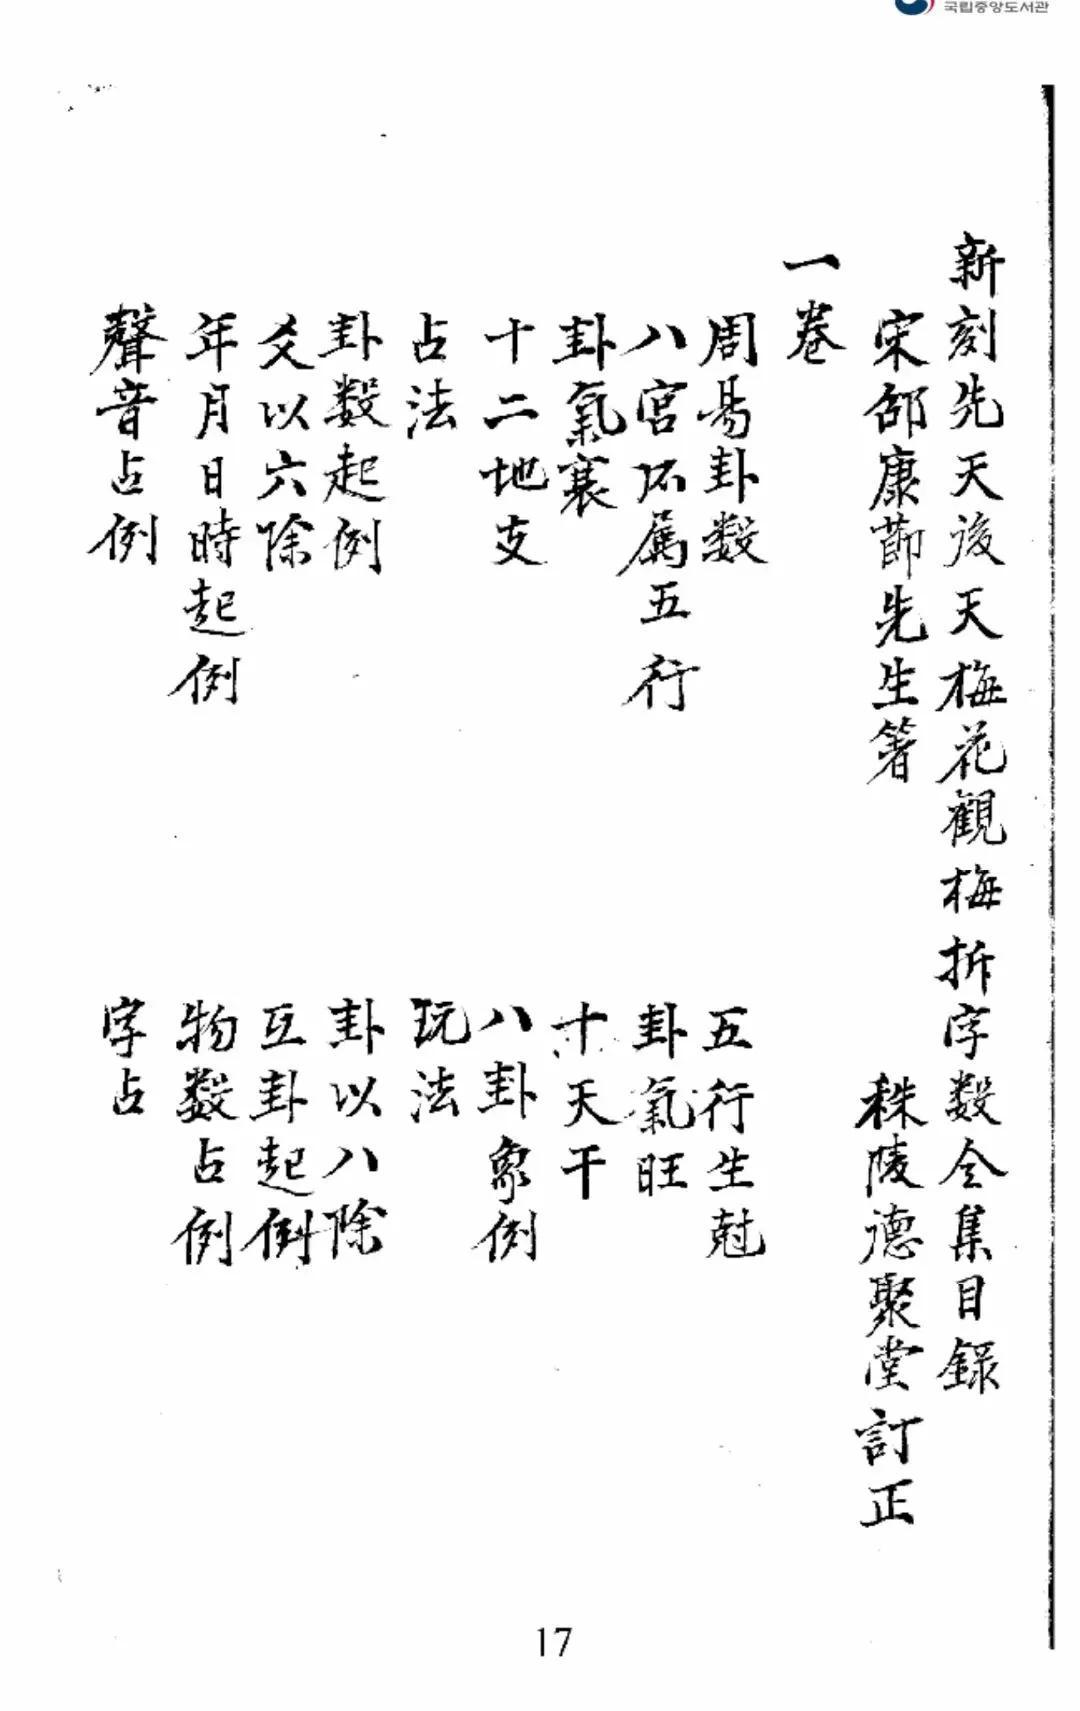 국립중앙도서관
新刻先天後天梅花觀梅拆字数全集目錄
宋邵康節先生著 秣陵德聚堂訂正
一卷
周易卦数 五行生尅
八宮所属五行 卦氣旺
卦氣衰 十天干
十二地支 八卦象例
占法 玩法
卦数起例 卦以八除
爻以六除 互卦起例
年月日時起例 物数占例
聲音占例 字占
17